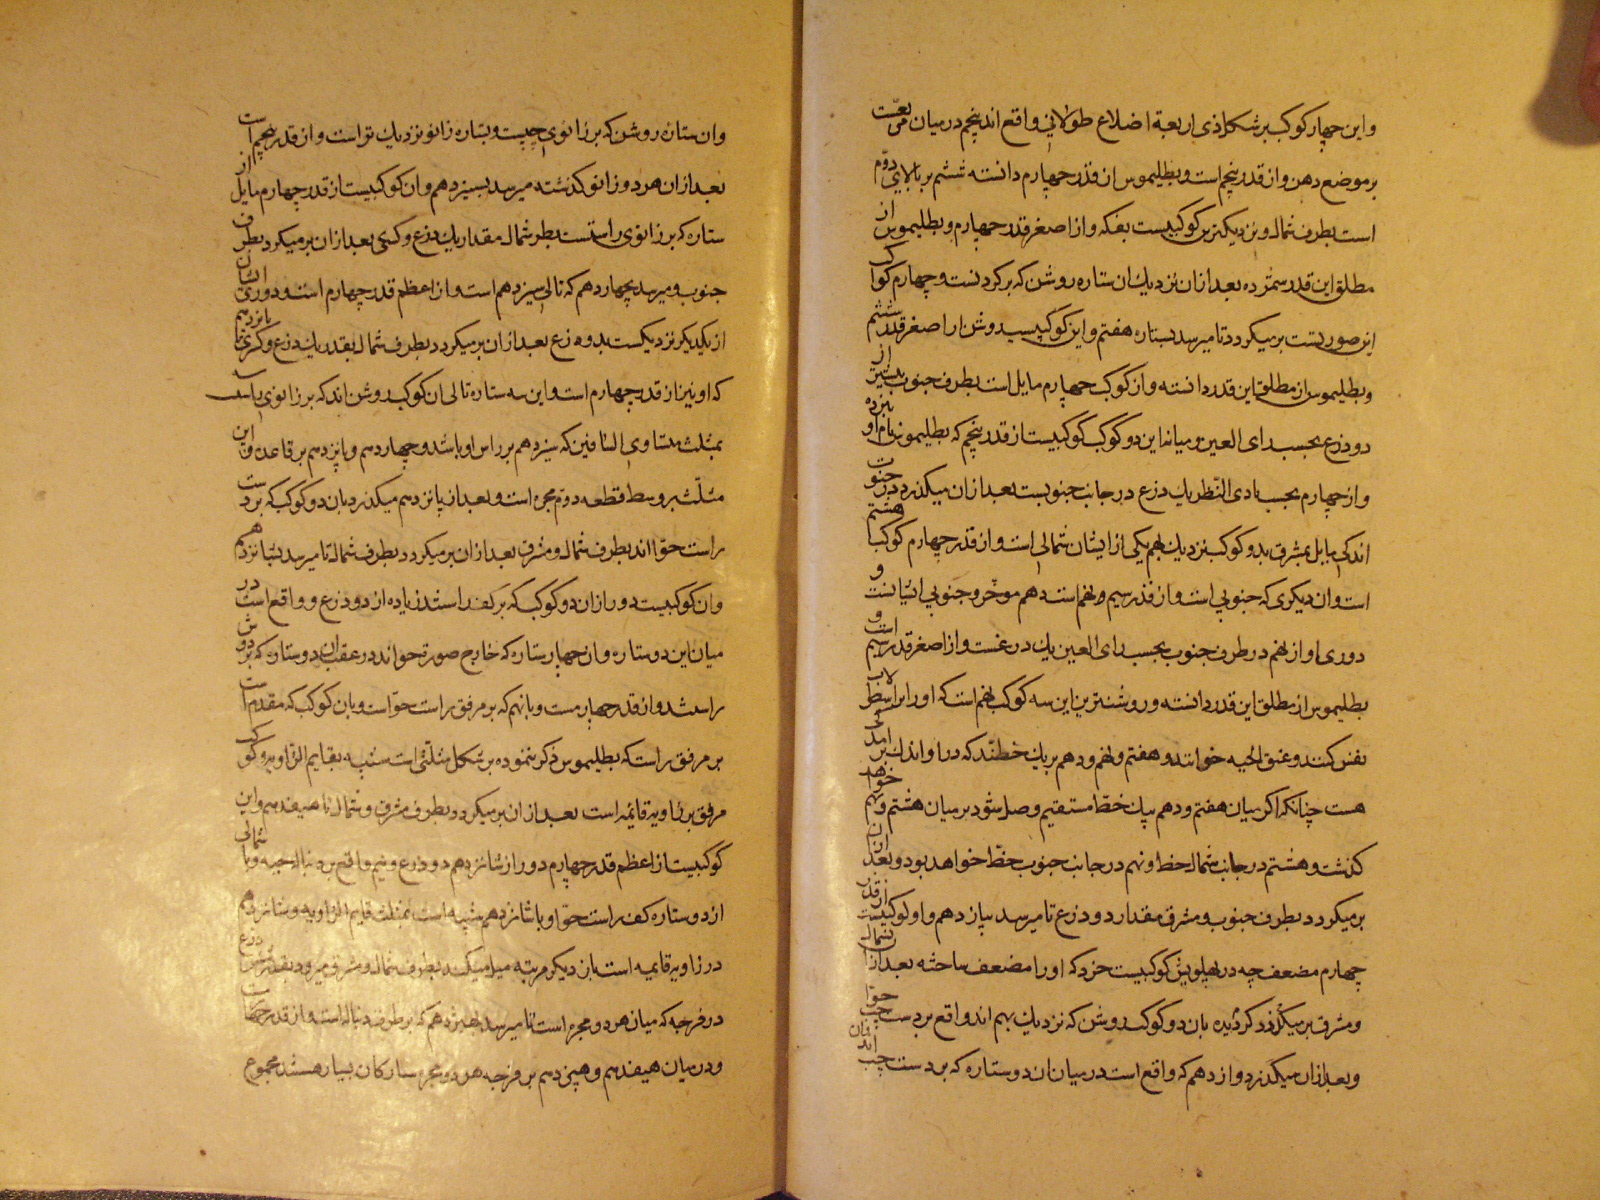 و این چهار کوکب بر شکل ذی اربعة اضلاع طولانی واقع اند پنجم در میان
بر موضع دهن و از قدر پنجم است و بطلیموس از قدر چهارم دانسته ششم بر بالای دوّم
است بطرف شمال و نزدیکترین کوکبیست بفکه و از اصغر قدر چهارم و بطلیموس از
مطلق این قدر شمرده بعد ازان نزدیک ان ستاره روشن که بر کردنست و چهارم کوکب
این صورتست بر میکردد تا میرسد بستاره هفتم و این کوکبیست روشن از اصغر قدر ششم
و بطلیموس از مطلق این قدر دانسته و از کوکب چهارم مایل است بطرف جنوب
دو ذرع بحسب رای العین و میانه این دو کوکب کوکبیست از قدر پنجم که بطلیموس نام او نبرده
و از چهارم بحسب بادی النّظر یک ذرع در جانب جنوبست بعد ازان میکذرد در جنوب
اندکی مایل بمشرق بدو کوکب نزدیک بهم یکی از ایشان شمالی است و از قدر چهارم کوکب هشتم
است و ان دیکری که جنوبی است و از قدر سیم و نهم است دهم موخّر و جنوبی ایشانست و
دوری او از نهم در طرف جنوب بحسب رای العین یک ذرعست و از اصغر قدر سیم است و
بطلیموس از مطلق این قدر دانسته و روشنترین این سه کوکب نهم است که او را
نقش کنند و عنق الحیه خوانند و هفتم و نهم و دهم بر یک خطّند که در او اندک
هست چنانکه اکر میان هفتم و دهم بیک خطّ مستقیم وصل شود بر میان هشتم و نهم خواهد
کذشت و هشتم در جانب شمال خط و نهم در جانب جنوب خطّ خواهد بود و بعد ازان
بر میکردد بطرف جنوب و مشرق مقدار دو ذرع تا میرسد بیازدهم و او کوکبیست از قدر
چهارم مضعف چه در پهلویش کوکبیست خرد که او را مضعف ساخته بعد ازان بشمال
و مشرق بر میکردد کردیده بان دو کوکب روشن که نزدیک بهم اند واقع بر دست چپ حوّا
و بعد ازان میکذرد بدوازدهم که واقع است در میان ان دو ستاره که بر دست چپ اند
و ان ستاره روشن که بر زانوی چپست و بستاره زانو نزدیک تر است و از قدر پنجم است
بعد ازان هر دو زانو کذشته میرسد بسیزدهم و ان کوکبیست از قدر چهارم مایل از
ستاره که بر زانوی راستست بطرف شمال مقدار یک ذرع و کسری بعد ازان بر میکردد بطرف
جنوب و میرسد بچهاردهم که تالی سیزدهم است و از اعظم قدر چهارم است و دوری ایشان
از یکدیکر نزدیکست بدو ذرع بعد ازان بر میکردد بطرف شمال بقدر یک ذرع و کسری تا پانزدهم
که او نیز از قدر چهارم است و این سه ستاره تالی ان کوکب روشن اند که بر زانوی راست
بمثلث متساوی الساقین که سیزدهم بر راس او باشد و چهاردهم و پانزدهم بر قاعده و این
مثلّث بر وسط قطعه دوّم مجره است و بعد از پانزدهم میکذرد بان دو کوکب که بر دست
راست حوّا اند بطرف شمال و مشرق بعد ازان بر میکردد بطرف شمال تا میرسد بشانزدهم
و ان کوکبیست دور از ان دو کوکب که بر کف راستند زیاده از دو ذرع و واقع است در
میان این دو ستاره و ان چهار ستاره که خارج صورت حوا اند در عقب ان دو ستاره که بر دوش
راستند و از قدر چهارمست و با نهم که بر مرفق راست حوّا است و بان کوکب که مقدم است
بر مرفق راست که بطلیموس ذکر ننموده بر شکل مثلّثی است شبیه بقایم الزّاویه و کوکب
مرفق بر زاویه قایمه است بعد ازان بر میکردد بطرف مشرق و شمال تا هیفدهم و این
کوکبیست از اعظم قدر چهارم دور از شانزدهم دو ذرع و نیم واقع بر دنباله حیه و با شمالی
از دو ستاره کف راست حوّا و با شانزدهم شبیه است بمثلث قایم الزاویه و شانزدهم
در زاویه قایمه است باز دیکر مرتبه میل میکند بطرف شمال و مشرق و میرود بقدر ذرع
در فرجه که میان هر دو مجره است تا میرسد بهیزدهم که بر طرف دنباله است و از قدر
و در میان هیفدهم و هیزدهم بر فرجه هر دو مجره ستارکان بسیار هستند مجموع